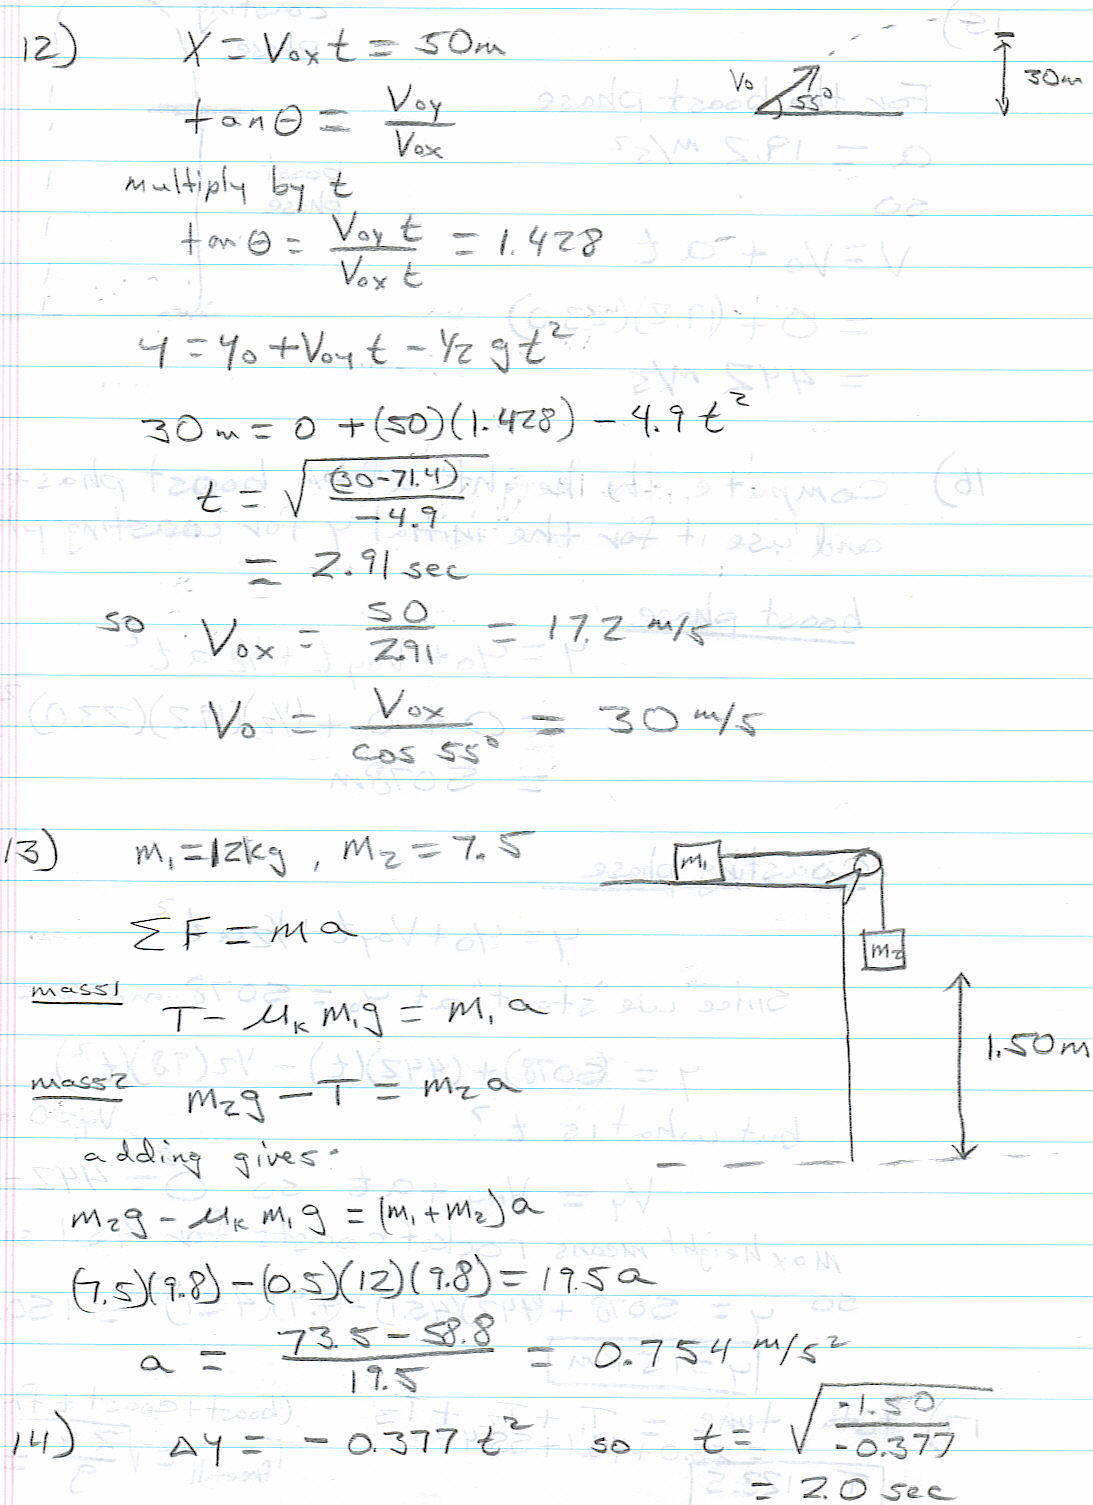 12) X = V₀ₓ t = 50m
V₀ 55° 30m
tanθ = V₀y / V₀ₓ
multiply by t
tanθ = V₀y t / V₀ₓ t = 1.428
y = y₀ + V₀y t - 1/2 g t²
30m = 0 + (50)(1.428) - 4.9 t²
t = √((30-71.4) / -4.9)
= 2.91 sec
so V₀ₓ = 50 / 2.91 = 17.2 m/s
V₀ = V₀ₓ / cos 55° = 30 m/s
13) m₁ = 12kg , m₂ = 7.5
m₁
ΣF = ma
m₂
mass1 T - μₖ m₁g = m₁ a
1.50m
mass2 m₂g - T = m₂ a
adding gives:
m₂g - μₖ m₁ g = (m₁+m₂)a
(7.5)(9.8) - (0.5)(12)(9.8) = 19.5a
a = 73.5 - 58.8 / 19.5 = 0.754 m/s²
14) Δy = - 0.377 t² so t = √(-1.50 / -0.377)
= 2.0 sec